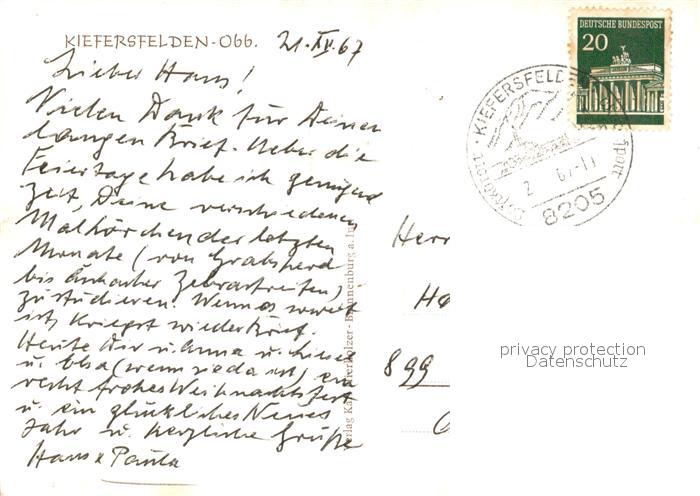 KIEFERSFELDEN-Obb.
21. XII. 67
Lieber Hans!
Vielen Dank für Deinen
langen Brief. Ueber die
Feiertage habe ich genügend
Zeit, Deine verschiedenen
der letzten
Monate (von
bis Zebrastreifen)
zu studieren. Wenn es soweit
ist, kriegst wieder Brief.
Heute Dir u. Anna u. Liesel
u. Elsa (wenn sie da ist) ein
recht frohes Weihnachtsfest
u. ein glückliches Neues
Jahr u. herzliche Grüße
Hans u Paula
DEUTSCHE BUNDESPOST
20
KIEFERSFELD
Sport
8205
Herr
899
privacy protection
Datenschutz
Brannenburg a. Inn